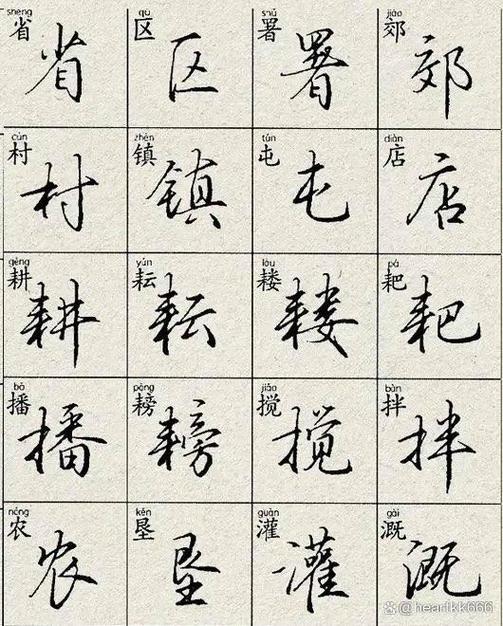 shěng qū shǔ jiāo
省 区 署 郊
省 区 署 郊
cūn zhèn tún diàn
村 镇 屯 店
村 镇 屯 店
gēng yún lóu pá
耕 耘 耧 耙
耕 耘 耧 耙
bō pǎng jiǎo bàn
播 耪 搅 拌
播 耪 搅 拌
nóng kěn guàn gài
农 垦 灌 溉
农 垦 灌 溉
@heartkk666